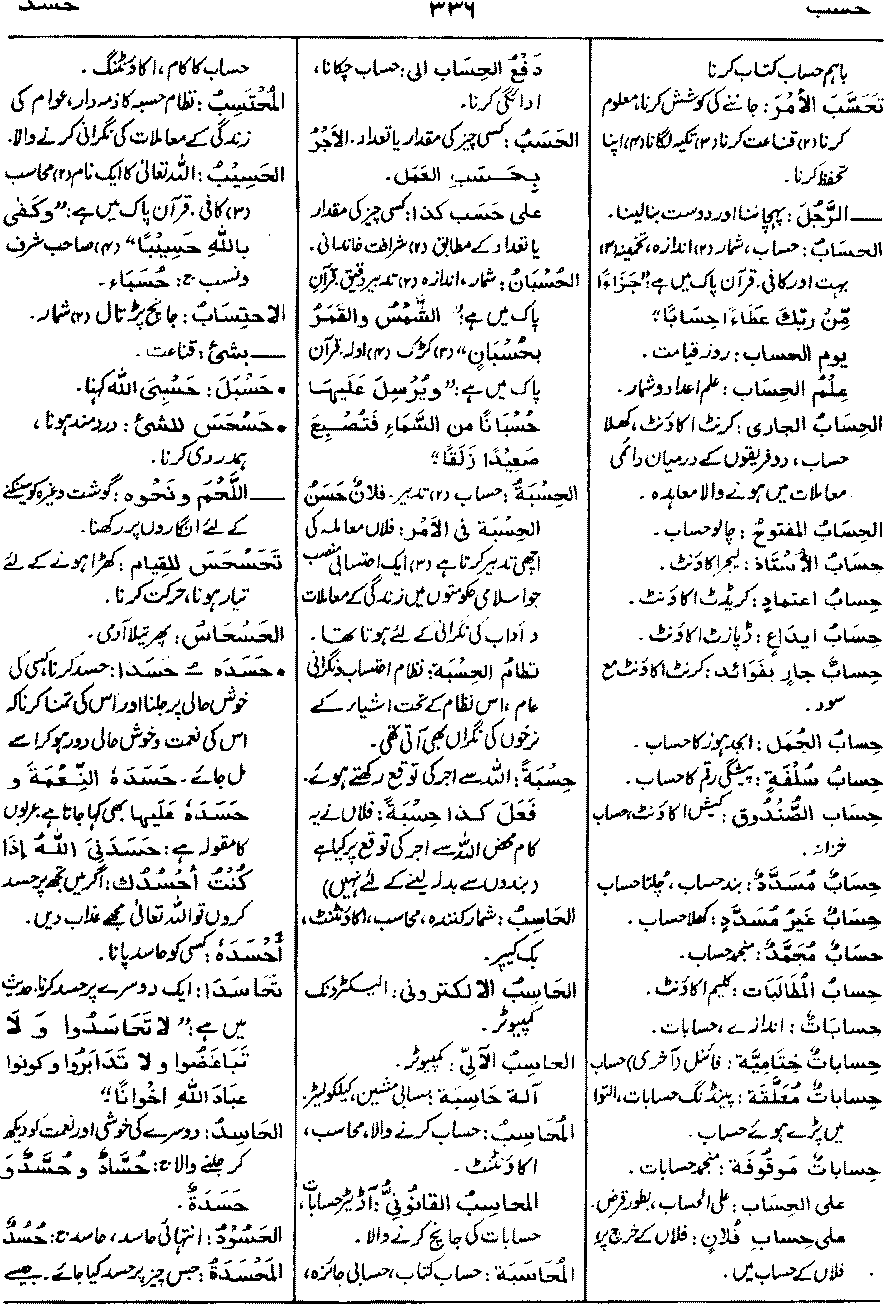 حسب
۳۳۶
حسد
باہم حساب کتاب کرنا
تَحَسَّبَ الأمْرَ: جاننے کی کوشش کرنا، معلوم
کرنا (۲) قناعت کرنا (۳) تکیہ لگانا (۴) اپنا
تحفظ کرنا۔
— الرَّجُلَ: پہچاننا اور دوست بنالینا۔
الحسابُ: حساب، شمار (۲) اندازہ، تخمینہ (۳)
بہت اور کافی۔ قرآن پاک میں ہے: "جَزَاءً
مِّنْ رَبِّكَ عَطَاءً حِسَابًا"
یوم الحساب: روزِ قیامت۔
عِلْمُ الحِساب: علمِ اعداد و شمار۔
الحِسابُ الجاری: کرنٹ اکاؤنٹ، کھلا
حساب، دو فریقوں کے درمیان دائمی
معاملات میں ہونے والا معاہدہ۔
الحِسابُ المفتوحُ: چالو حساب۔
حِسابُ الأُسْتَاذ: لیجر اکاؤنٹ۔
حِسابُ اعتمادٍ: کریڈٹ اکاؤنٹ۔
حِسابُ ایداعٍ: ڈپازٹ اکاؤنٹ۔
حِسابٌ جارٍ بفَوائد: کرنٹ اکاؤنٹ مع
سود۔
حِسابُ الجُمَل: ابجد ہوز کا حساب۔
حِسابُ سُلْفَةٍ: پیشگی رقم کا حساب۔
حِساب الصُّنْدُوق: کیش اکاؤنٹ، حساب
خزانہ۔
حِسابٌ مُسَدَّدٌ: بند حساب، چلتا حساب
حِسابٌ غَیرُ مُسَدَّدٍ: کھلا حساب۔
حِسابٌ مُجَمَّدٌ: منجمد حساب۔
حِسابُ المُطالَبَات: کلیم اکاؤنٹ۔
حِساباتٌ: اندازے، حسابات۔
حِساباتٌ خِتامِیَّة: فائنل (آخری) حساب
حِساباتٌ مُعَلَّقَة: پینڈنگ حسابات، التوا
میں پڑے ہوئے حساب۔
حِساباتٌ مَوقُوفَة: منجمد حسابات۔
علی الحِساب: علی الحساب، بطور قرض۔
علی حِسابِ فُلَانٍ: فلاں کے خرچ پر،
فلاں کے حساب میں۔
دَفْعُ الحِسَاب الی: حساب چکانا،
ادائگی کرنا۔
الحَسَبُ: کسی چیز کی مقدار یا تعداد۔ الأجْرُ
بِحَسَبِ العَمَل۔
علی حَسَب کذا: کسی چیز کی مقدار
یا تعداد کے مطابق (۲) شرافت خاندانی۔
الحُسْبَانُ: شمار، اندازہ (۲) تدبیر دقیق۔ قرآن
پاک میں ہے: "الشَّمْسُ والقَمَرُ
بحُسْبَانٍ" (۳) کڑک (۴) اولہ۔ قرآن
پاک میں ہے: "ویُرْسِلَ عَلَیهَا
حُسْبَانًا من السَّمَاءِ فَتُصْبِحَ
صَعِیْدًا زَلَقًا"
الحِسْبَةُ: حساب (۲) تدبیر۔ فُلانٌ حَسَنُ
الحِسْبَة فی الأمْر: فلاں معاملہ کی
اچھی تدبیر کرتا ہے (۳) ایک احتسابی منصب
جو اسلامی حکومتوں میں زندگی کے معاملات
و آداب کی نگرانی کے لئے ہوتا تھا۔
نظامُ الحِسبَة: نظامِ احتساب و نگرانی
عام، اس نظام کے تحت اشیار کے
نرخوں کی نگرانی بھی آتی تھی۔
حِسْبَةً: اللہ سے اجر کی توقع رکھتے ہوئے۔
فَعَلَ کذا حِسْبَةً: فلاں نے یہ
کام محض اللہ سے اجر کی توقع پر کیا ہے
(بندوں سے بدلہ لینے کے لئے نہیں)
الحَاسِبُ: شمار کنندہ، محاسب، اکاؤنٹنٹ،
بک کیپر۔
الحَاسِبُ الالکترونی: الیکٹرونک
کمپیوٹر۔
الحاسِبُ الآلیّ: کمپیوٹر۔
آلة حَاسِبَة: حسابی مشین، کیلکولیٹر۔
المُحَاسِبُ: حساب کرنے والا، محاسب،
اکاؤنٹنٹ۔
المُحاسِبُ القانُونیُّ: آڈیٹر حسابات،
حسابات کی جانچ کرنے والا۔
المُحَاسَبَة: حساب کتاب، حسابی جائزہ،
حساب کا کام، اکاؤنٹنگ۔
المُحْتَسِبُ: نظام حسبہ کا ذمہ دار، عوام کی
زندگی کے معاملات کی نگرانی کرنے والا۔
الحَسِیْبُ: اللہ تعالٰی کا ایک نام (۲) محاسب
(۳) کافی۔ قرآن پاک میں ہے: "وکَفٰی
باللهِ حَسِیْبًا" (۴) صاحب شرف
ونسب ج: حُسَبَاء۔
الاحتِسَابُ: جانچ پڑتال (۲) شمار۔
— بشیٔ: قناعت۔
• حَسْبَلَ: حَسْبِیَ اللہ کہنا۔
• حَسْحَسَ للشیٔ: درد مند ہونا،
ہمدردی کرنا۔
— اللَّحْمَ ونَحْوِہ: گوشت وغیرہ کو سینکنے
کے لئے انگاروں پر رکھنا۔
تَحَسْحَسَ للقِیام: کھڑا ہونے کے لئے
تیار ہونا، حرکت کرنا۔
الحَسْحَاسُ: پھرتیلا آدمی۔
• حَسَدَہ ُ حَسَدًا: حسد کرنا، کسی کی
خوش حالی پر جلنا اور اس کی تمنا کرنا کہ
اس کی نعمت و خوش حالی دور ہو کر اسے
مل جائے۔ حَسَدَہُ النِّعْمَةَ و
حَسَدَہُ عَلَیها بھی کہا جاتا ہے، عربوں
کا مقولہ ہے: حَسَدَنِیَ اللّٰہُ إذَا
کُنْتُ أحْسُدُك: اگر میں تجھ پر حسد
کروں تو اللہ تعالٰی مجھے عذاب دیں۔
أحْسَدَہُ: کسی کو حاسد پانا۔
تَحَاسَدَا: ایک دوسرے پر حسد کرنا، حدیث
میں ہے: "لا تَحَاسَدُوا وَ لَا
تَبَاغَضُوا و لا تَدَابَرُوا وکونوا
عبادَ اللهِ اخْوانًا"
الحَاسِدُ: دوسرے کی خوشی اور نعمت کو دیکھ
کر جلنے والا ج: حُسَّادٌ و حُسَّدٌ و
حَسَدَةٌ۔
الحَسُوْدُ: انتہائی حاسد، حاسد ج: حُسُدٌ
المَحْسَدَةُ: جس چیز پر حسد کیا جائے۔ جیسے